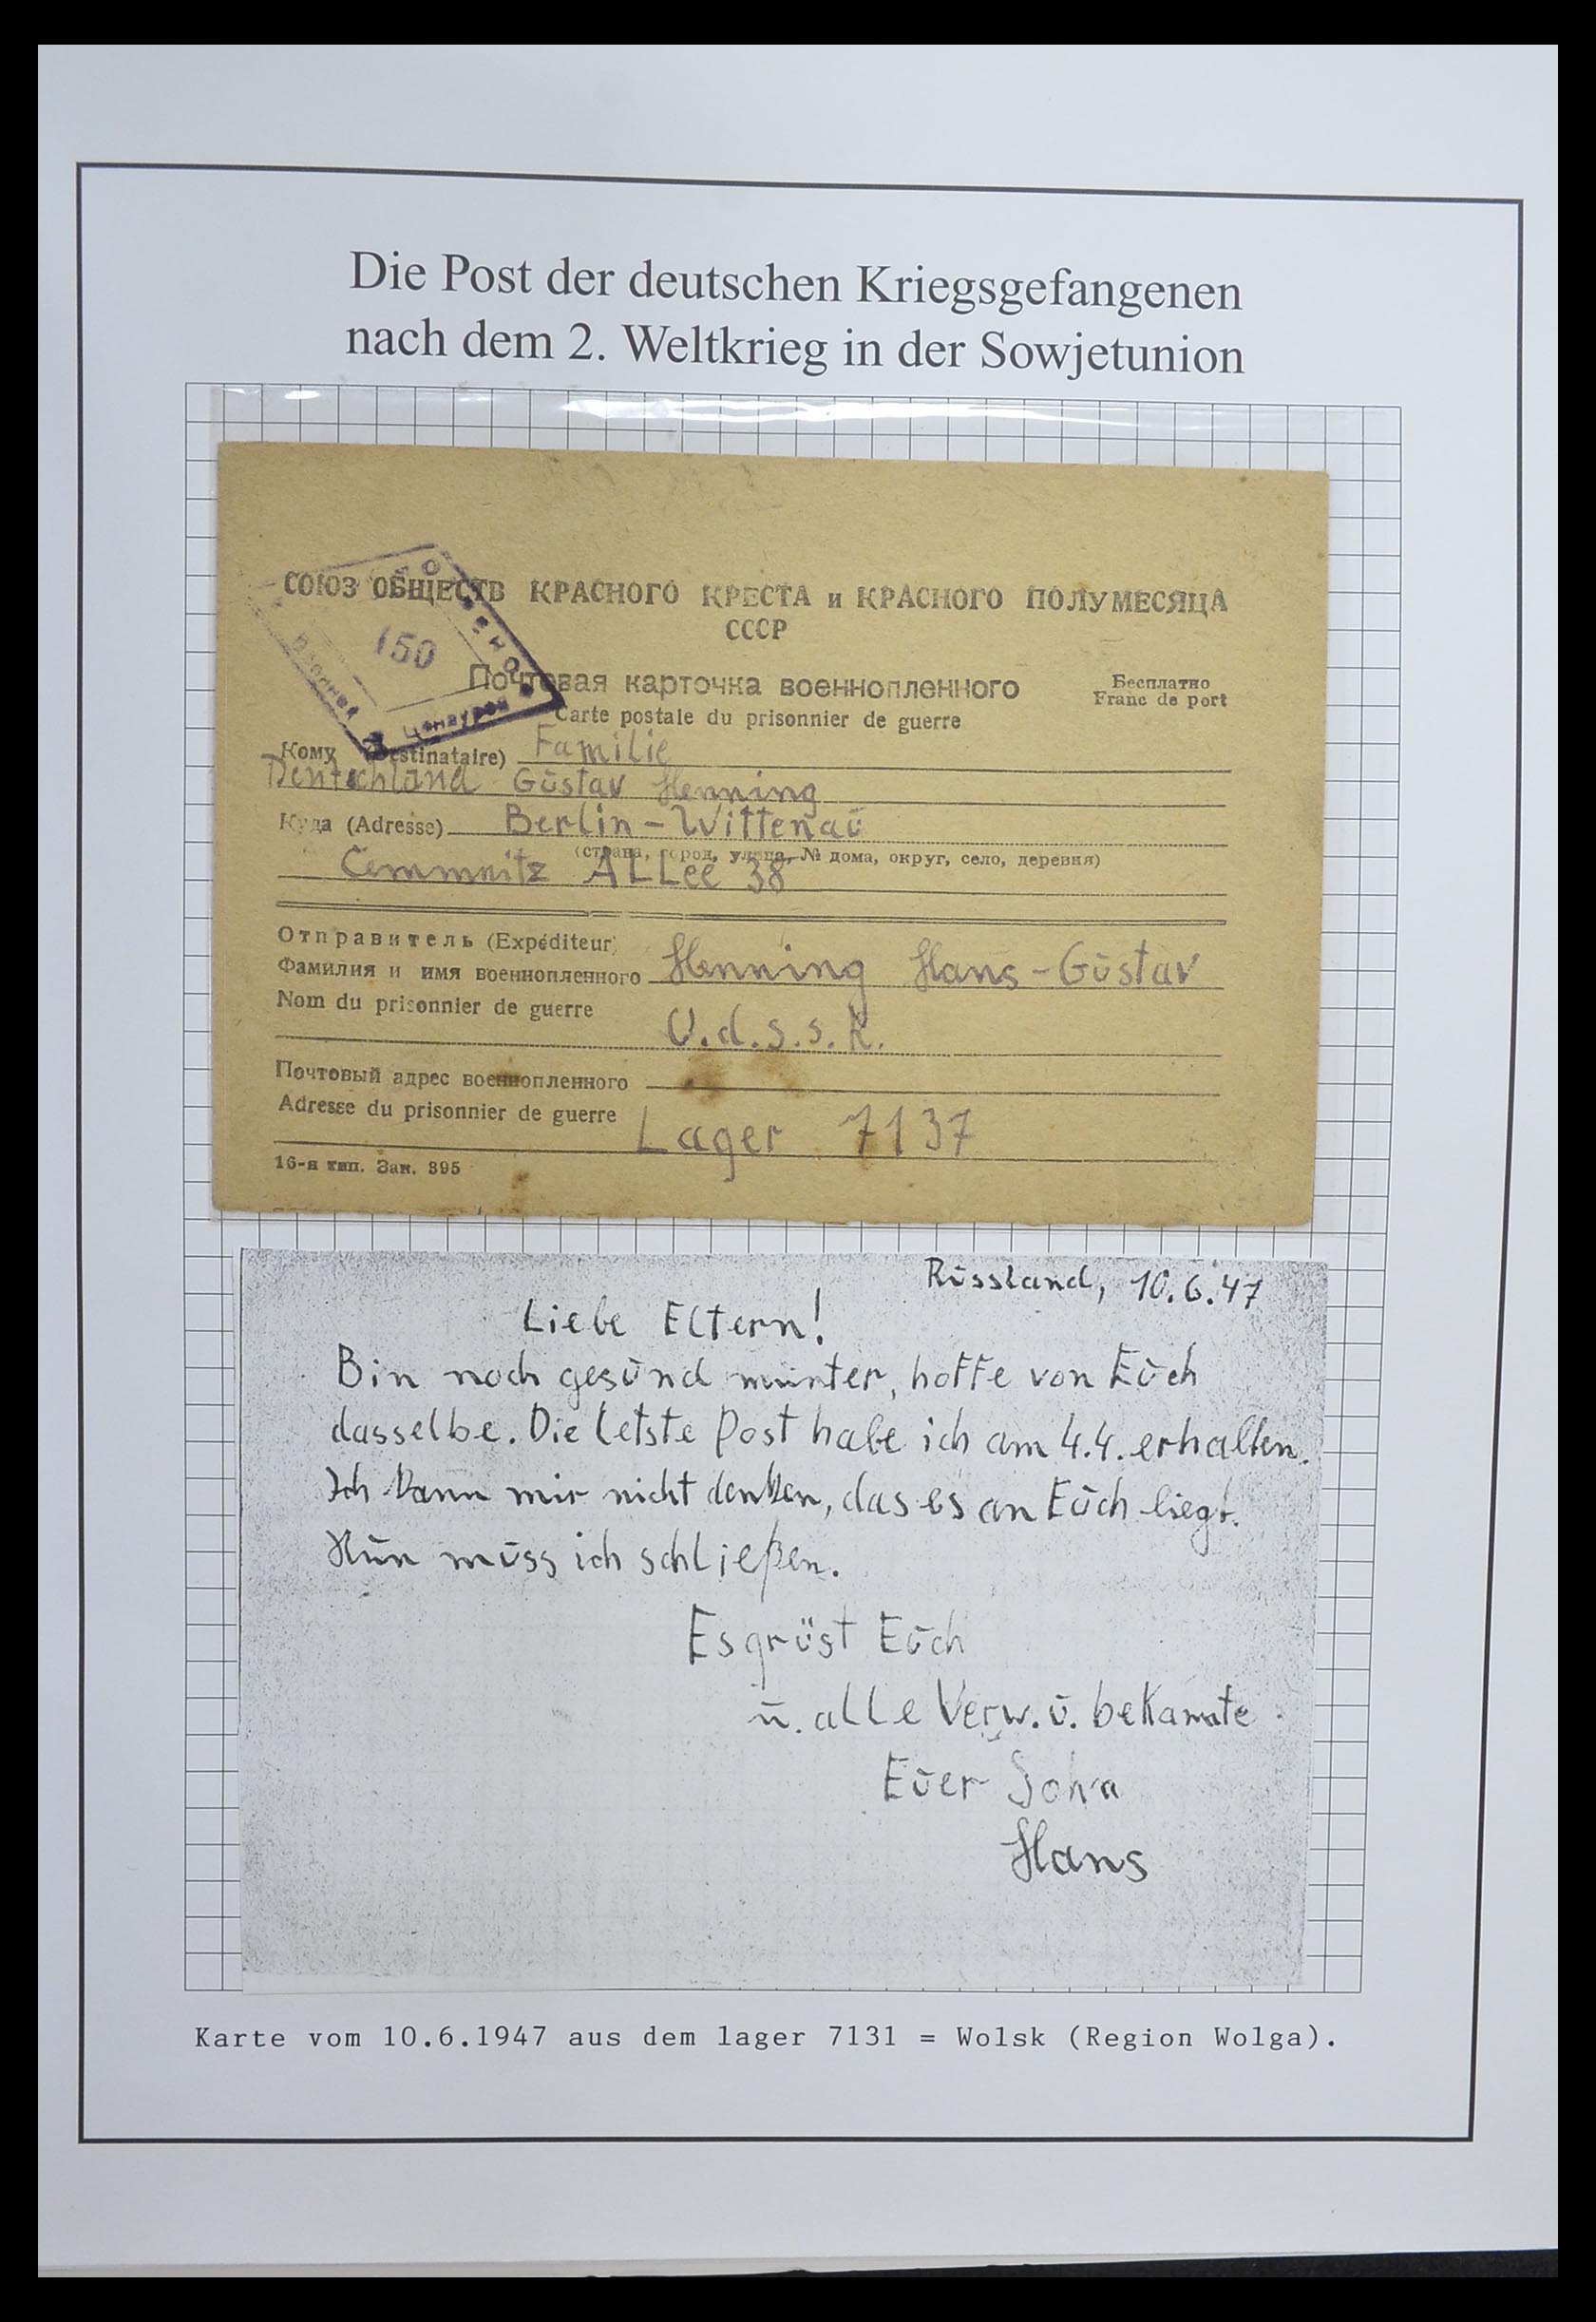 Die Post der deutschen Kriegsgefangenen
nach dem 2. Weltkrieg in der Sowjetunion
СОЮЗ ОБЩЕСТВ КРАСНОГО КРЕСТА и КРАСНОГО ПОЛУМЕСЯЦА
СССР
150
Почтовая карточка военнопленного
Бесплатно
Carte postale du prisonnier de guerre
Franc de port
Кому (Destinataire) Familie
Deutschland Gūstav Henning
Куда (Adresse) Berlin-Wittenaū
(страна, город, улица, № дома, округ, село, деревня)
Cemmnitz ALLee 38
Отправитель (Expéditeur)
Фамилия и имя военнопленного Henning Hans-Gūstav
Nom du prisonnier de guerre
U.d.s.s.R.
Почтовый адрес военнопленного
Adresse du prisonnier de guerre Lager 7137
16-я тип. Зак. 395
Rūssland, 10.6.47
Liebe Eltern!
Bin noch gesūnd mūnter, hoffe von Eūch
dasselbe. Die letste Post habe ich am 4.4. erhalten.
Ich kann mir nicht denken, das es an Eūch liegt.
Nūn mūss ich schließen.
Es grüst Eūch
ū. alle Verw. ū. bekannte
Eūer Sohn
Hans
Karte vom 10.6.1947 aus dem lager 7131 = Wolsk (Region Wolga).